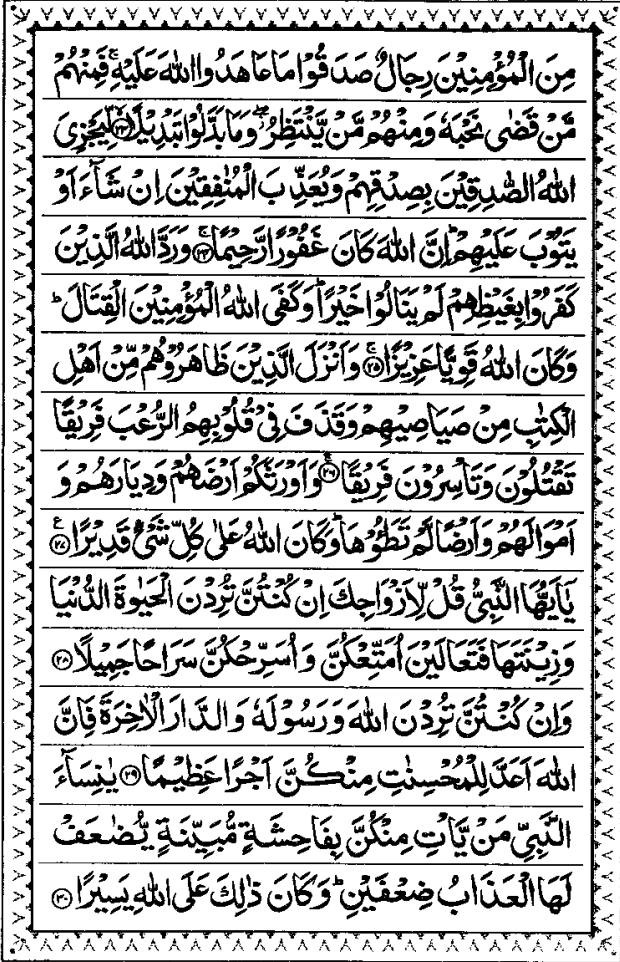 مِنَ الْمُؤْمِنِيْنَ رِجَالٌ صَدَقُوْا مَا عَاهَدُوا اللّٰهَ عَلَيْهِ ۚ فَمِنْهُمْ
مَّنْ قَضٰى نَحْبَهٗ وَمِنْهُمْ مَّنْ يَّنْتَظِرُ ۖ وَمَا بَدَّلُوْا تَبْدِيْلًا ۙ﴿۲۳﴾ لِّيَجْزِيَ
اللّٰهُ الصّٰدِقِيْنَ بِصِدْقِهِمْ وَيُعَذِّبَ الْمُنٰفِقِيْنَ اِنْ شَآءَ اَوْ
يَتُوْبَ عَلَيْهِمْ ؕ اِنَّ اللّٰهَ كَانَ غَفُوْرًا رَّحِيْمًا ۚ﴿۲۴﴾ وَرَدَّ اللّٰهُ الَّذِيْنَ
كَفَرُوْا بِغَيْظِهِمْ لَمْ يَنَالُوْا خَيْرًا ؕ وَكَفَى اللّٰهُ الْمُؤْمِنِيْنَ الْقِتَالَ ؕ
وَكَانَ اللّٰهُ قَوِيًّا عَزِيْزًا ۚ﴿۲۵﴾ وَاَنْزَلَ الَّذِيْنَ ظَاهَرُوْهُمْ مِّنْ اَهْلِ
الْكِتٰبِ مِنْ صَيَاصِيْهِمْ وَقَذَفَ فِيْ قُلُوْبِهِمُ الرُّعْبَ فَرِيْقًا
تَقْتُلُوْنَ وَتَاْسِرُوْنَ فَرِيْقًا ۚ﴿۲۶﴾ وَاَوْرَثَكُمْ اَرْضَهُمْ وَدِيَارَهُمْ وَ
اَمْوَالَهُمْ وَاَرْضًا لَّمْ تَطَـُٔوْهَا ؕ وَكَانَ اللّٰهُ عَلٰى كُلِّ شَيْءٍ قَدِيْرًا ﴿۲۷﴾ ع
يٰۤاَيُّهَا النَّبِيُّ قُلْ لِّاَزْوَاجِكَ اِنْ كُنْتُنَّ تُرِدْنَ الْحَيٰوةَ الدُّنْيَا
وَزِيْنَتَهَا فَتَعَالَيْنَ اُمَتِّعْكُنَّ وَاُسَرِّحْكُنَّ سَرَاحًا جَمِيْلًا ﴿۲۸﴾
وَاِنْ كُنْتُنَّ تُرِدْنَ اللّٰهَ وَرَسُوْلَهٗ وَالدَّارَ الْاٰخِرَةَ فَاِنَّ
اللّٰهَ اَعَدَّ لِلْمُحْسِنٰتِ مِنْكُنَّ اَجْرًا عَظِيْمًا ﴿۲۹﴾ يٰنِسَآءَ
النَّبِيِّ مَنْ يَّاْتِ مِنْكُنَّ بِفَاحِشَةٍ مُّبَيِّنَةٍ يُّضٰعَفْ
لَهَا الْعَذَابُ ضِعْفَيْنِ ؕ وَكَانَ ذٰلِكَ عَلَى اللّٰهِ يَسِيْرًا ﴿۳۰﴾